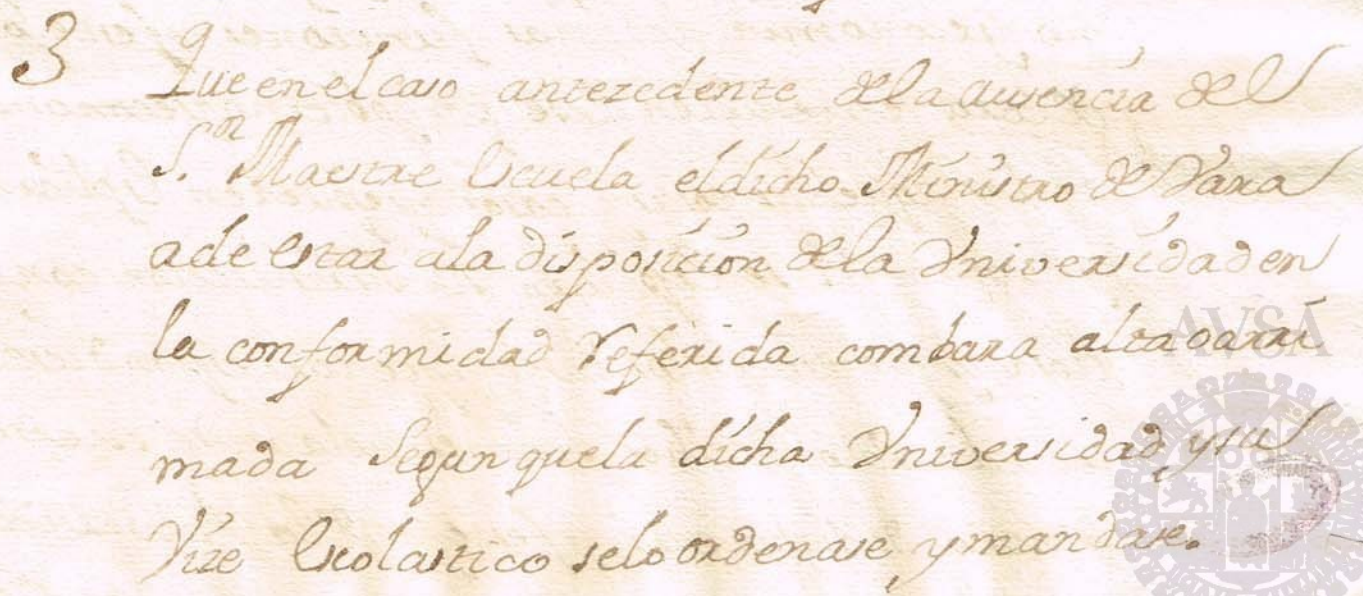 3 Que en el caso antezedente de la ausencia del
S.or Maestre Escuela el dicho Ministro de Vara
a de estar a la disposicion de la Vniversidad en
la conformidad referida com bara alta o arri
mada segun que la dicha Vniversidad, y su
Vize Escolastico se lo ordenase, y mandase.
AVSA